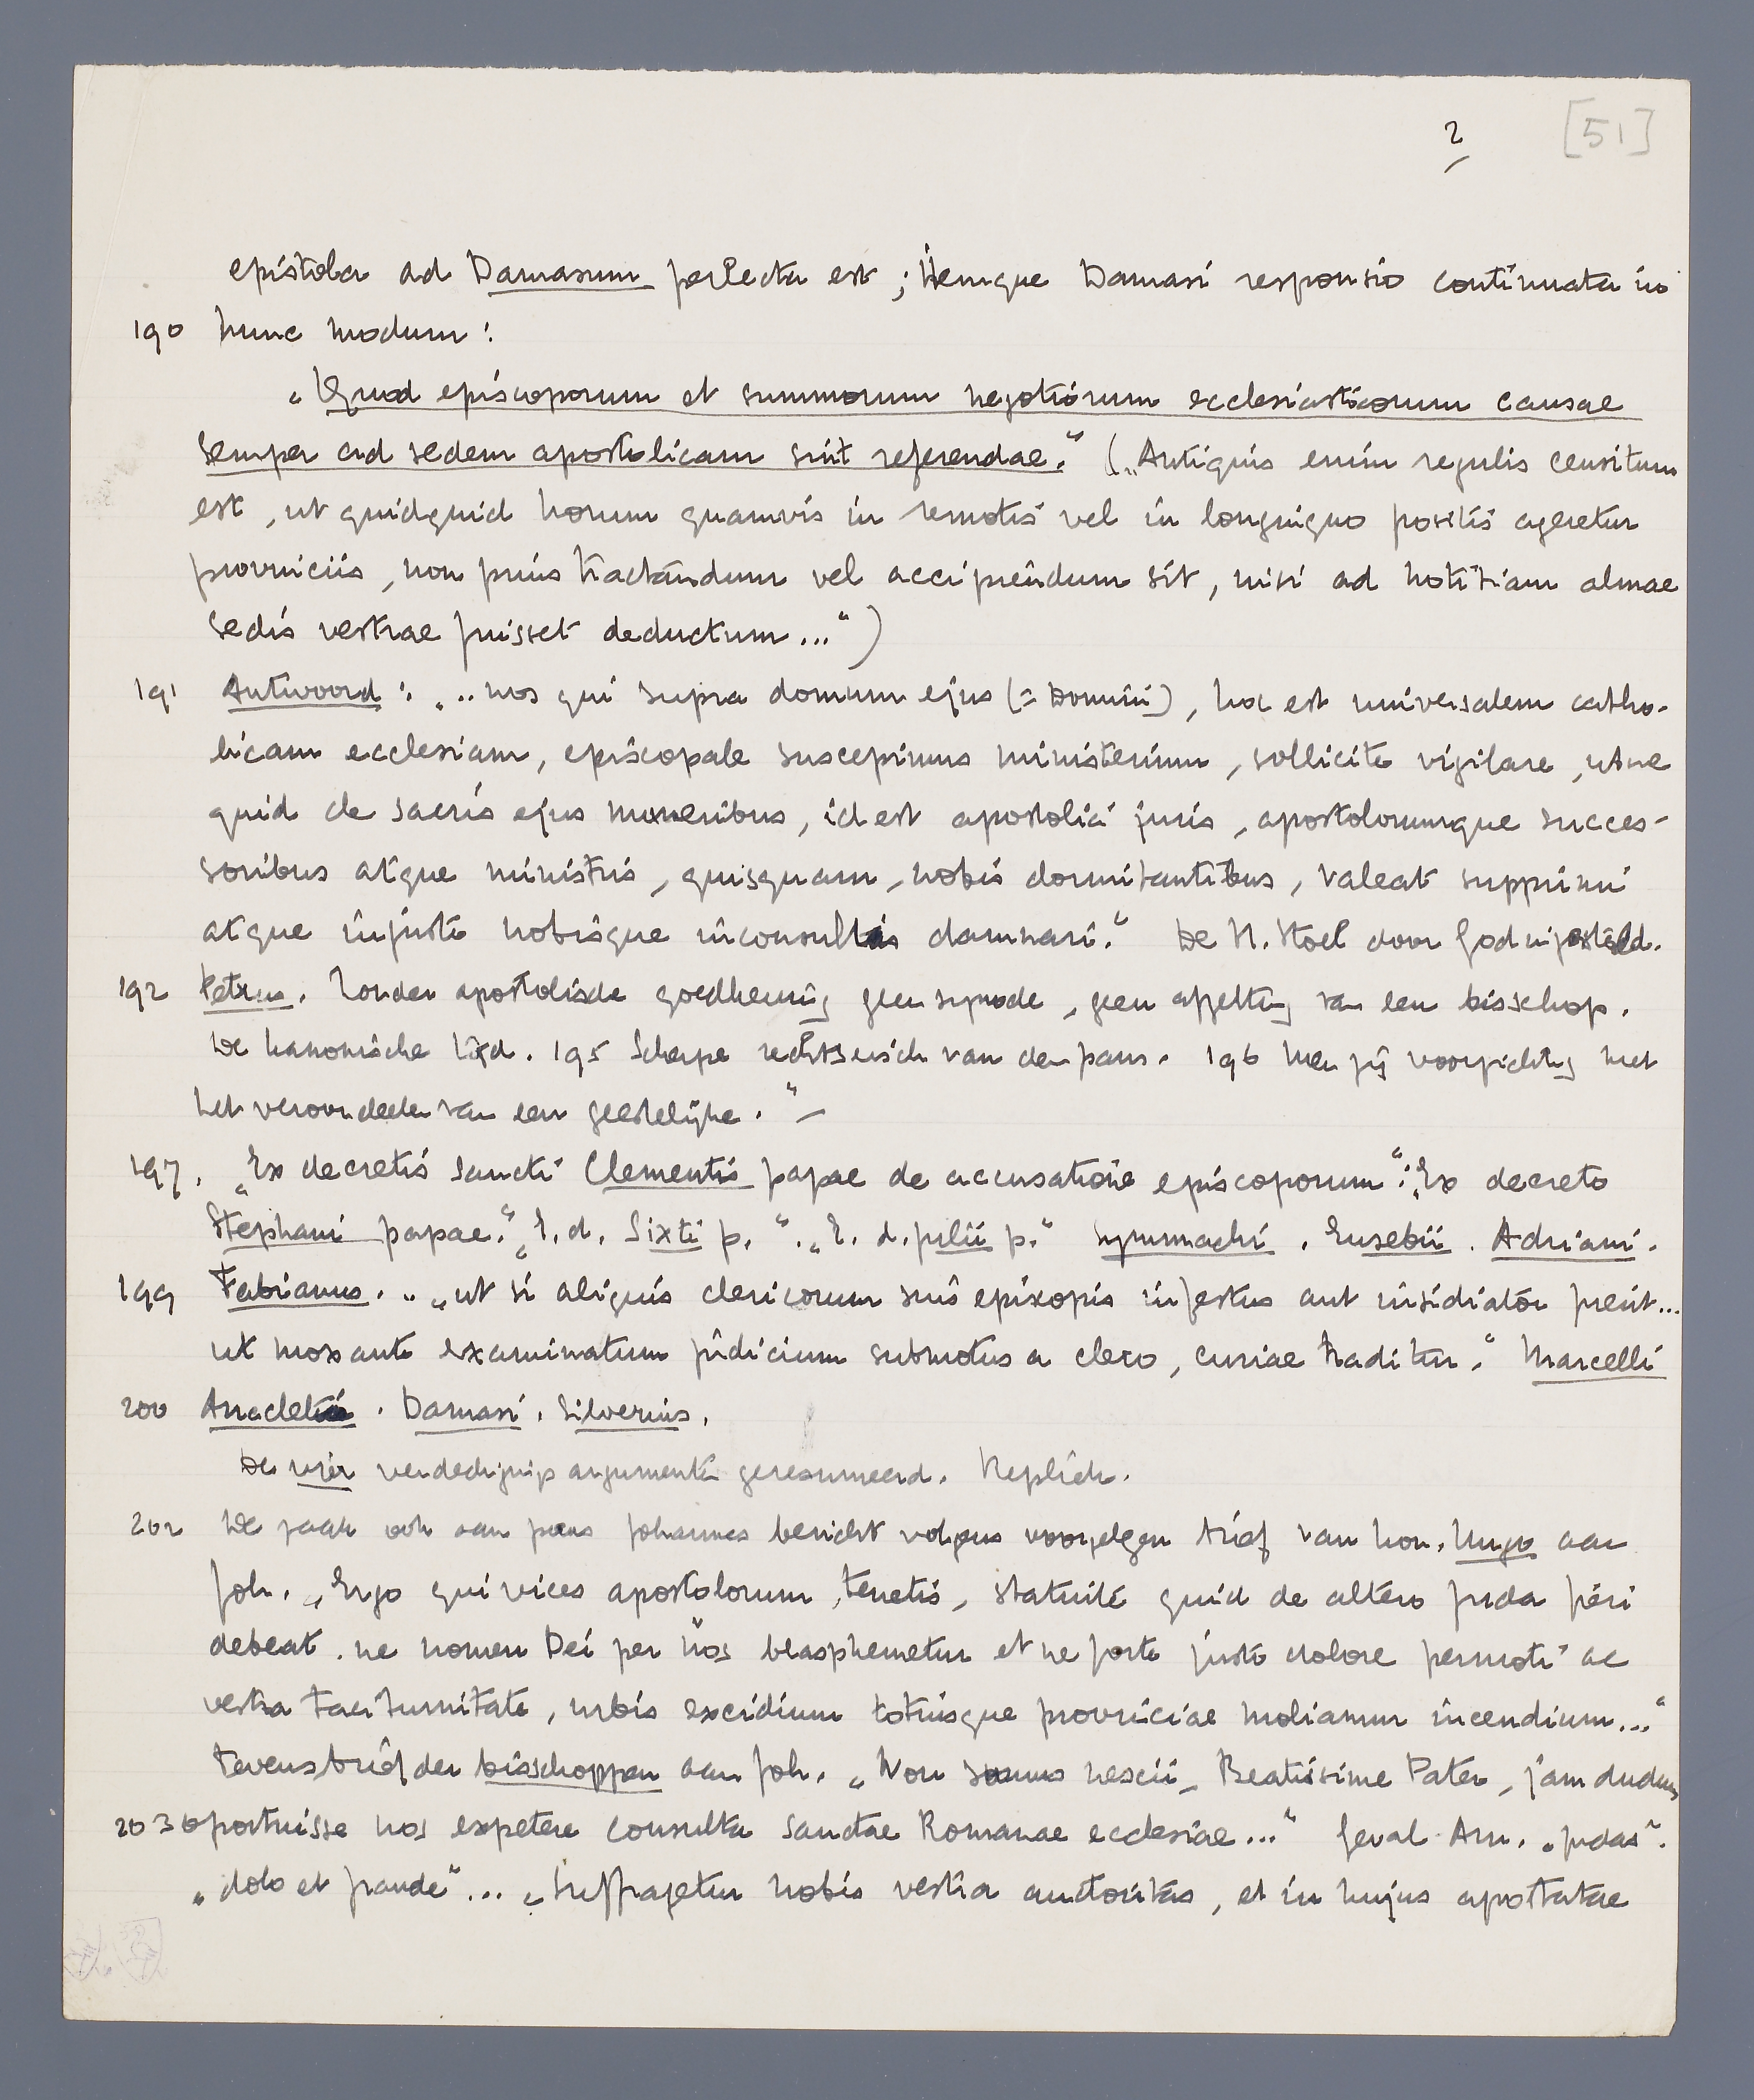 2 [51]
epistola ad Damasum perlecta est ; itemque Damasi responsio continuata in
190 hunc modum :
„Quod episcoporum et summorum negotiorum ecclesiasticorum causae
semper ad sedem apostolicam sint referendae.“ („Antiquis enim regulis censitum
est , ut quidquid horum quamvis in remotis vel in longinquo positis ageretur
provinciis , non prius tractandum vel accipiendum sit , nisi ad notitiam almae
sedis vestrae fuisset deductum ...“)
191 Antwoord : „.. nos qui supra domum ejus (= Domini) , hoc est universalem catho-
licam ecclesiam , episcopale suscepimus ministerium , sollicite vigilare , ut ne
quid de sacris ejus muneribus , id est apostolici juris , apostolorumque succes-
soribus atque ministris , quisquam , nobis dormitantibus , valeat supprimi
atque injuste nobisque inconsultis damnari.“ De H. Stoel door God ingesteld.
192 Petrus . Zonder apostolische goedkeuring geen synode , geen afzetting van een bisschop .
De kanonische tijd . 195 Scherpe rechtseisch van den paus . 196 Men zij voorzichtig met
het veroordeelen van een geestelijke .“ —
197 . „Ex decretis sancti Clementis papae de accusatione episcoporum“ : „Ex decreto
Stephani papae.“ „E. d. Sixti p.“ . „E. d. Julii p.“ Symmachi . Eusebii . Adriani .
199 Fabianus . „.. ut si aliquis clericorum suis episcopis infestus aut insidiator fuerit ...
ut mox ante examinatum judicium submotus a clero , curiae tradetur .“ Marcelli
200 Anacleti . Damasi . Silverius .
De vier verdedigings argumenten geresumeerd . Repliek .
202 De zaak ook aan paus Johannes bericht volgens voorgelezen brief van kon . Hugo aan
Joh . „Ergo qui vices apostolorum tenetis , statuite quid de altero Juda fieri
debeat . ne nomen Dei per nos blasphemetur et ne forte justo dolore permoti ac
vestra taciturnitate , urbis excidium totiusque provinciae moliamur incendium ...“
Tevens brief der bisschoppen aan Joh . „Non sumus nescii , Beatissime Pater , jam dudum
203 oportuisse nos expetere consulta sanctae Romanae ecclesiae ...“ Geval Arn . „Judas“ .
„dolo et fraude“ ... „Suffragetur nobis vestra auctoritas , et in hujus apostatae